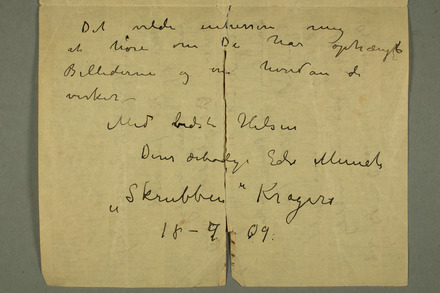 Det vilde interessere mig
at høre om De har ophængt
Billederne og om hvordan de
virker –
Med bedste Hilsen
Deres ærbødige Edv Munch
„Skrubben" Kragerø
18 – 7 09.